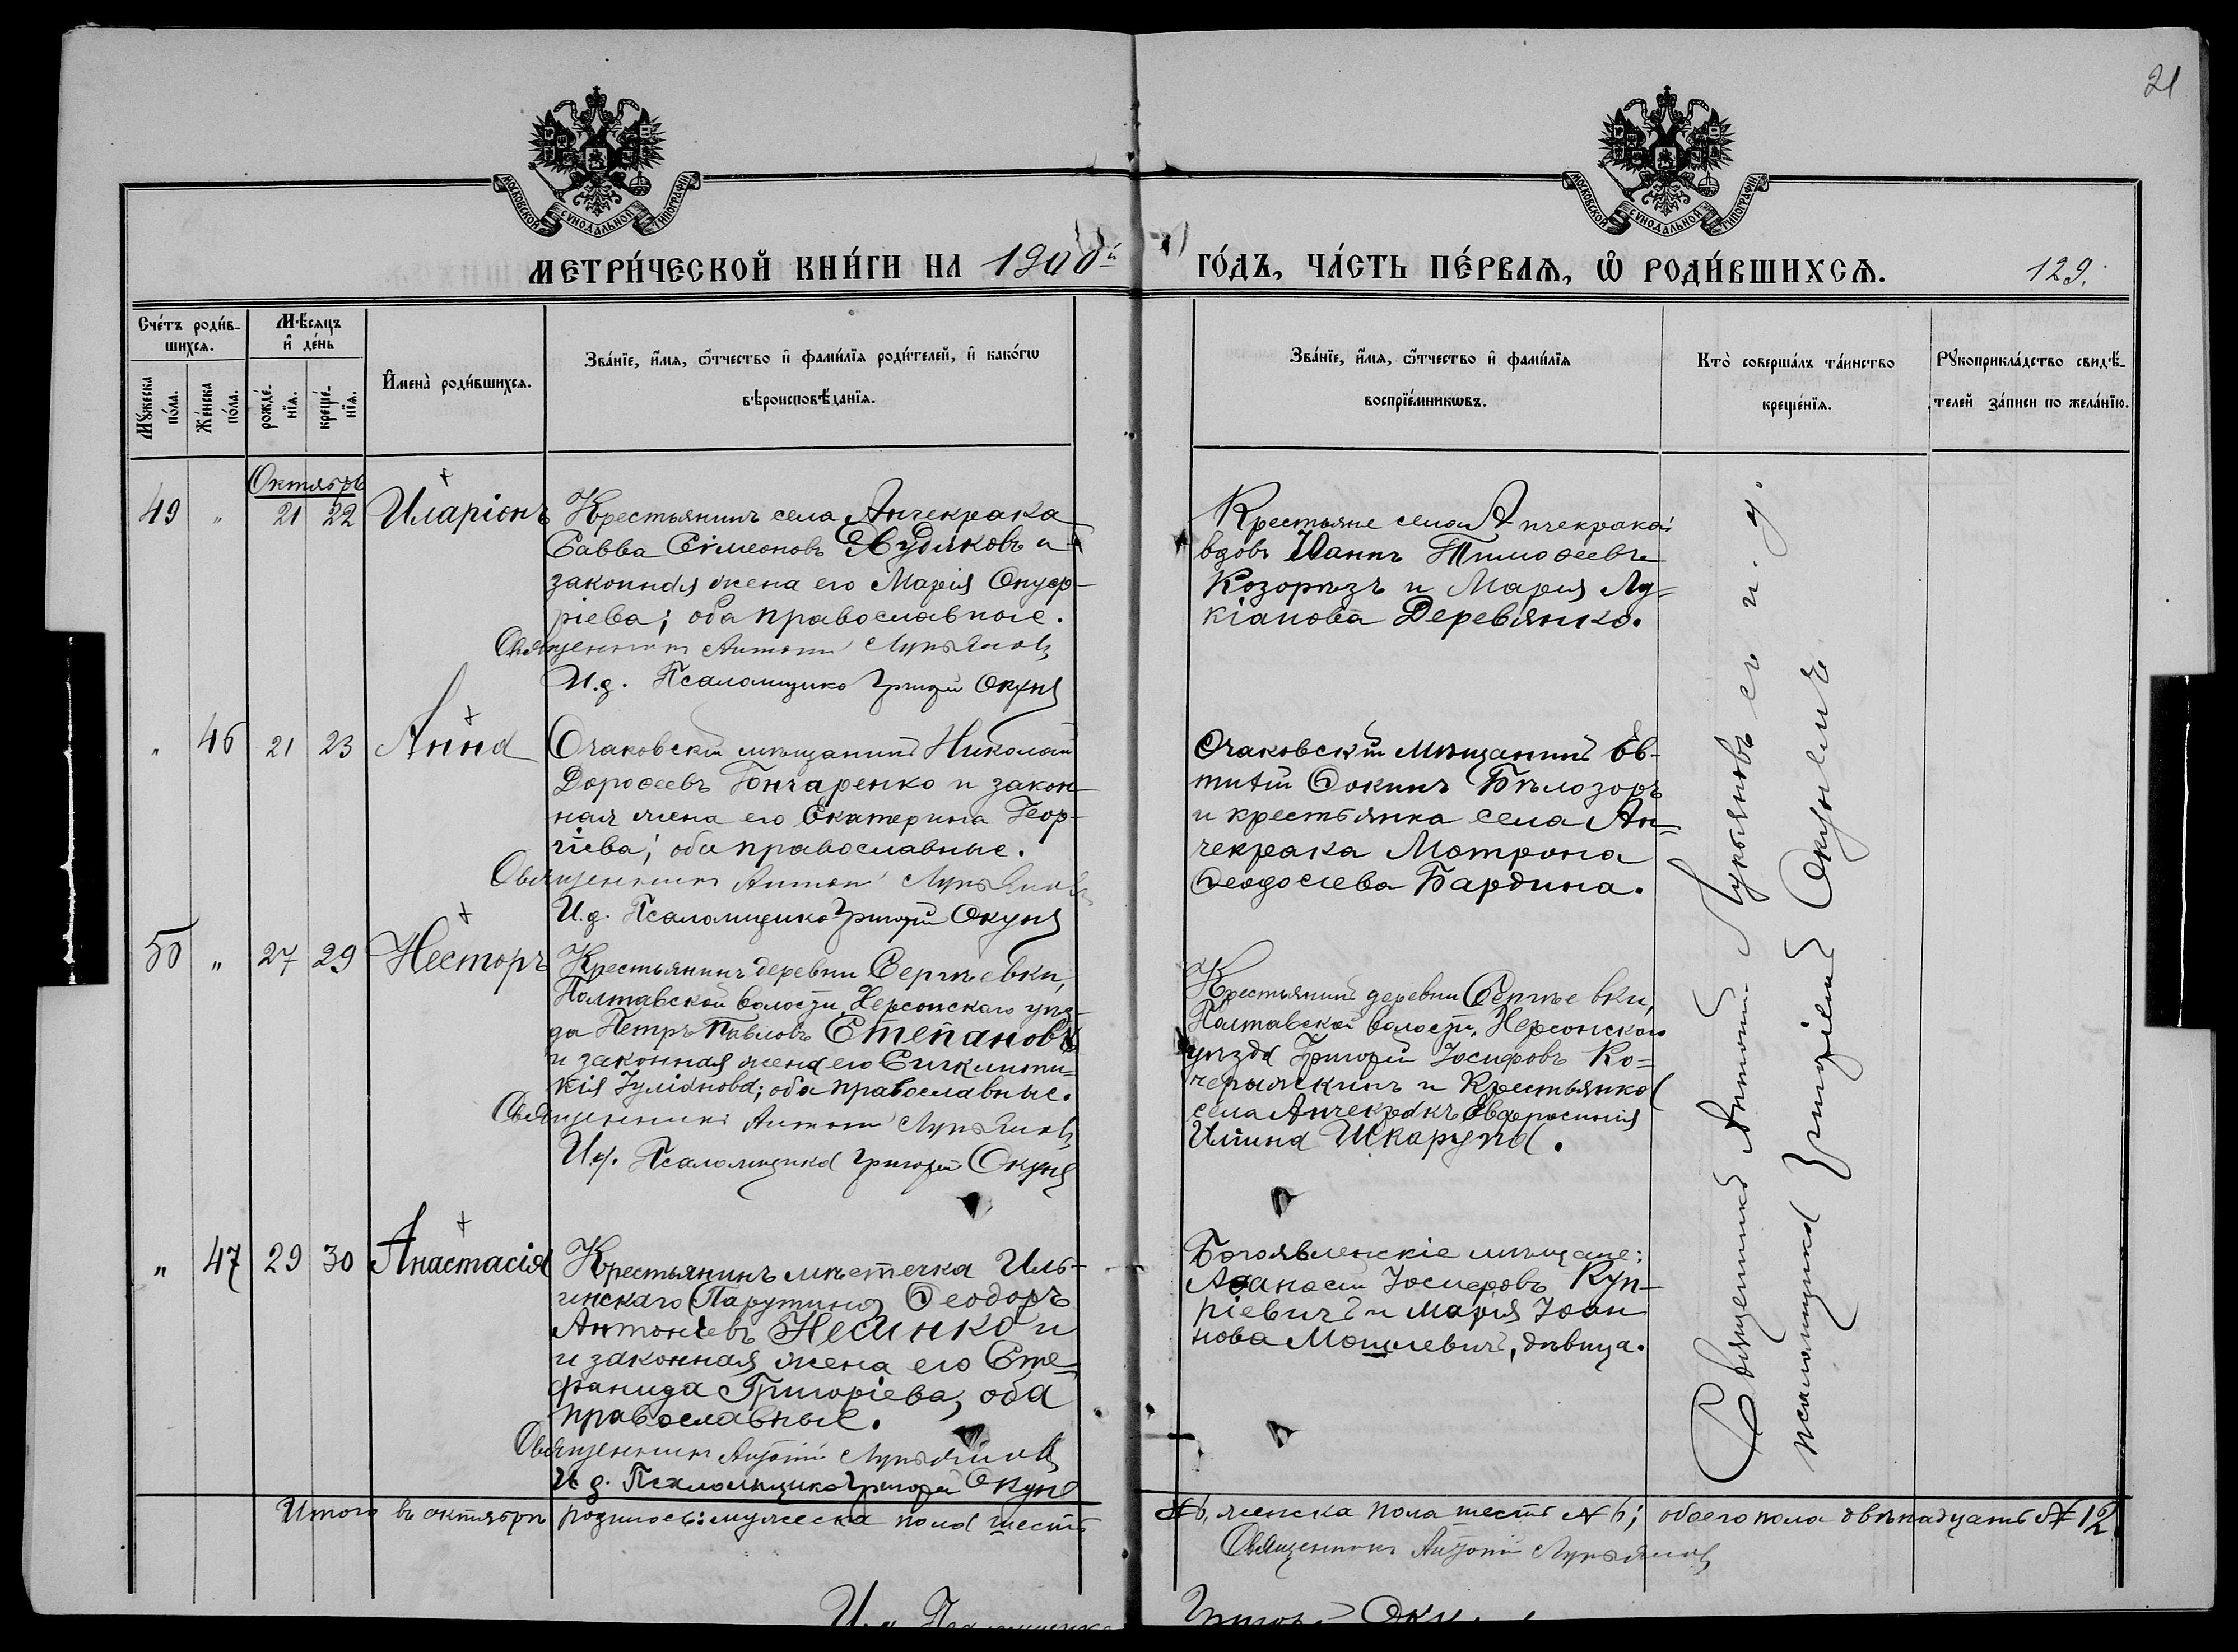 21
МОСКОВСКОЙ СѴНОДАЛЬНОЙ ТИПОГРАФІИ
МОСКОВСКОЙ СѴНОДАЛЬНОЙ ТИПОГРАФІИ
МЕТРИ́ЧЕСКОЙ КНИ́ГИ НА 1900й ГО́ДЪ, ЧА́СТЬ ПЕ́РВАѦ, Ѡ РОДИ́ВШИХСѦ. 129.
Сче́тъ роди́в-
шихсѧ.
Мѣ́сѧцъ
и҆ де́нь
Мꙋ́жеска
по́ла.
Же́нска
по́ла.
рожде́-
нїѧ.
креще́-
нїѧ.
И҆мена̀ роди́вшихсѧ.
Зва́нїе, и҆́мѧ, ѻ҆́тчество и҆ фами́лїѧ роди́телей, и҆ како́гѡ
вѣроисповѣ́данїѧ.
Зва́нїе, и҆́мѧ, ѻ҆́тчество и҆ фами́лїѧ
воспрїе́мникѡвъ.
Кто̀ соверша́лъ та́инство
креще́нїѧ.
Рꙋкоприкла́дство свидѣ́-
телей за́писи по жела́нїю.
Октябрь
49 " 21 22 Иларіонъ
Крестьянинъ села Анчекрака
Савва Симеоновъ Худиковъ и
законная жена его Марія Онуф-
ріева; оба православные.
Священникъ Антоній Лукьяновъ
И.д. Псаломщика Григорій Окунь
Крестьяне села Анчекрака:
вдовъ Іоаннъ Тимоѳеевъ
Козорѣзъ и Марія Лу-
кіанова Деревянко.
" 46 21 23 Анна
Очаковскій мѣщанинъ Николай
Дороѳеевъ Гончаренко и закон-
ная жена его Екатерина Геор-
гіева; оба православные.
Священникъ Антоній Лукьяновъ
И.д. Псаломщика Григорій Окунь
Очаковскій мѣщанинъ Ев-
тихій Ѳокинъ Бѣлозоръ
и крестьянка села Ан-
чекрака Матрона
Ѳеодосіева Бардина.
50 " 27 29 Несторъ
Крестьянинъ деревни Сергѣевки,
Полтавской волости, Херсонскаго уѣз-
да Петръ Павловъ Степановъ
и законная жена его Синклити-
кія Іуліанова; оба православные.
Священникъ Антоній Лукьяновъ
И.д. Псаломщика Григорій Окунь
Крестьянинъ деревни Сергѣевки,
Полтавской волости, Херсонскаго
уѣзда Григорій Іосифовъ Ко-
чержскинъ и Крестьянка
села Анчекракъ Евфросинія
Иліина Шкарупа.
" 47 29 30 Анастасія
Крестьянинъ мѣстечка Иль-
инскаго (Парутино) Ѳеодоръ
Антоніевъ Несинко и
и законная жена его Сте-
фанида Григоріева, оба
православные.
Священникъ Антоній Лукьяновъ
И.д. Псаломщика Григорій Окунь
Богоявленскіе мѣщане:
Аѳанасій Іосифовъ Куп-
ріевичъ и Марія Іоан-
нова Мошлевичъ, дѣвица.
Священникъ Антоній Лукьяновъ съ и. д.
псаломщика Григоріемъ Окунемъ
Итого въ октябрѣ родилось: мужеска пола шесть № 6, женска пола шесть № 6; обоего пола двѣнадцать № 12
Священникъ Антоній Лукьяновъ
И.д. Псаломщика Григорій Окунь